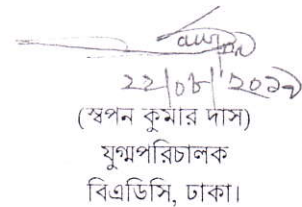 ২২/০৮/২০১৯
(স্বপন কুমার দাস)
যুগ্মপরিচালক
বিএডিসি, ঢাকা।